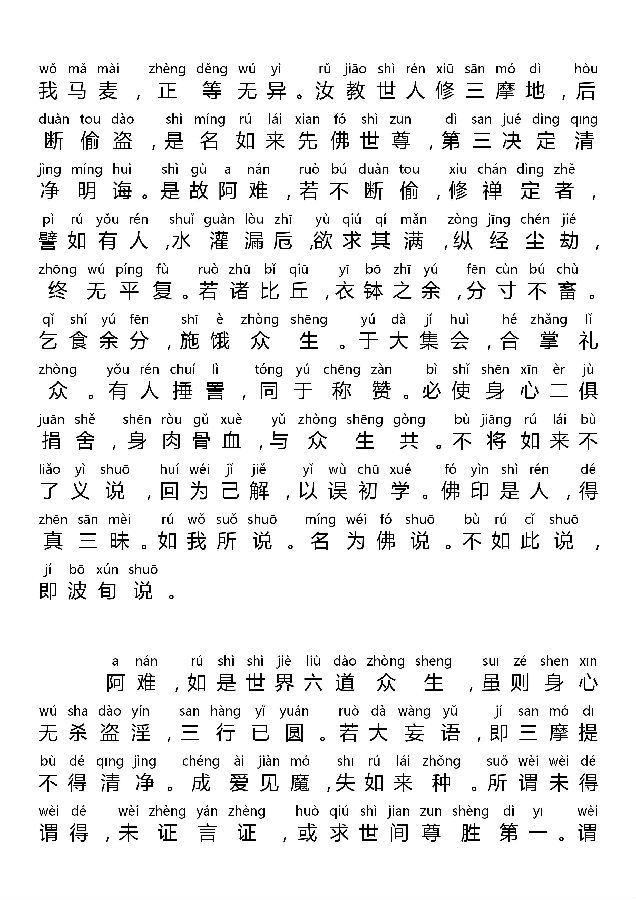 wǒ mǎ mài zhèng děng wú yì rǔ jiāo shì rén xiū sān mó dì hòu
我马麦,正等无异。汝教世人修三摩地,后
duàn tou dào shì míng rú lái xian fó shì zun dì san jué dìng qıng
断偷盗,是名如来先佛世尊,第三决定清
jìng míng huì shì gù a nán ruò bú duàn tou xiu chán dìng zhě
净明诲。是故阿难,若不断偷,修禅定者,
pì rú yǒu rén shuǐ guàn lòu zhī yù qiú qí mǎn zòng jīng chén jié
譬如有人,水灌漏卮,欲求其满,纵经尘劫,
zhōng wú píng fù ruò zhū bǐ qiū yī bō zhī yú fēn cùn bú chù
终无平复。若诸比丘,衣钵之余,分寸不畜。
qǐ shí yú fēn shī è zhòng shēng yú dà jí huì hé zhǎng lǐ
乞食余分,施饿众生。于大集会,合掌礼
zhòng yǒu rén chuí lì tóng yú chēng zàn bì shǐ shēn xīn èr jù
众。有人捶詈,同于称赞。必使身心二俱
juān shě shēn ròu gǔ xuè yǔ zhòng shēng gòng bù jiāng rú lái bù
捐舍,身肉骨血,与众生共。不将如来不
liǎo yì shuō huí wéi jǐ jiě yǐ wù chū xué fó yìn shì rén dé
了义说,回为己解,以误初学。佛印是人,得
zhēn sān mèi rú wǒ suǒ shuō míng wéi fó shuō bù rú cǐ shuō
真三昧。如我所说。名为佛说。不如此说,
jí bō xún shuō
即波旬说。
a nán rú shì shì jiè liù dào zhòng sheng suı zé shen xın
阿难,如是世界六道众生,虽则身心
wú sha dào yín san hàng yǐ yuán ruò dà wàng yǔ jí san mó dı
无杀盗淫,三行已圆。若大妄语,即三摩提
bù dé qıng jìng chéng ài jiàn mó shı rú lái zhǒng suǒ wèi wèi dé
不得清净。成爱见魔,失如来种。所谓未得
wèi dé wèi zhèng yán zhèng huò qiú shì jian zun shèng dì yı wèi
谓得,未证言证,或求世间尊胜第一。谓